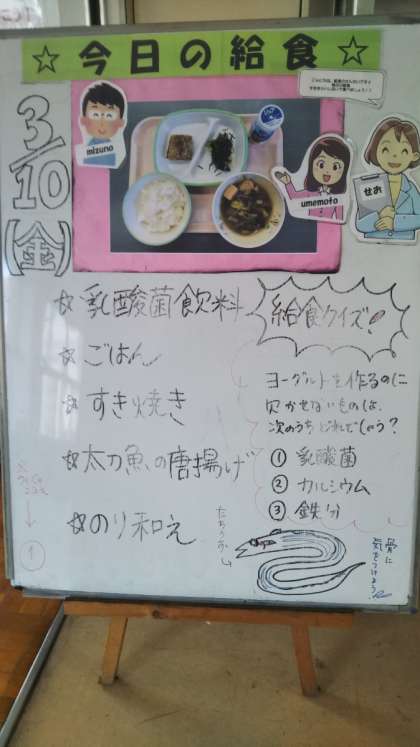 ☆今日の給食☆
3/10
(金)
mizuno
umemoto
せお
☆乳酸菌飲料
☆ごはん
☆すき焼き
☆太刀魚の唐揚げ
☆のり和え
給食クイズ!
ヨーグルトを作るのに
欠かせないものは、
次のうちどれでしょう?
① 乳酸菌
② カルシウム
③ 鉄分
たちうお
骨に
気をつけよう
①